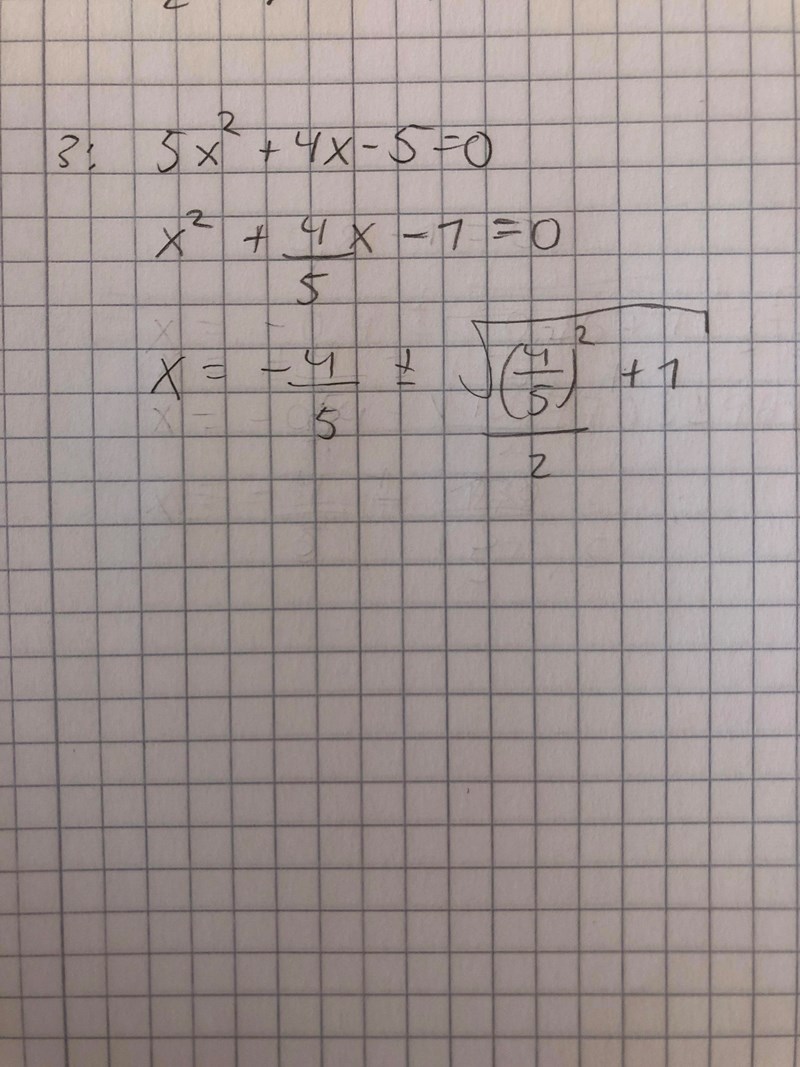 3: 5x² + 4x - 5 = 0
x² + 4/5 x - 1 = 0
x = - 4/5 ± √((4/5)²/2 + 1)